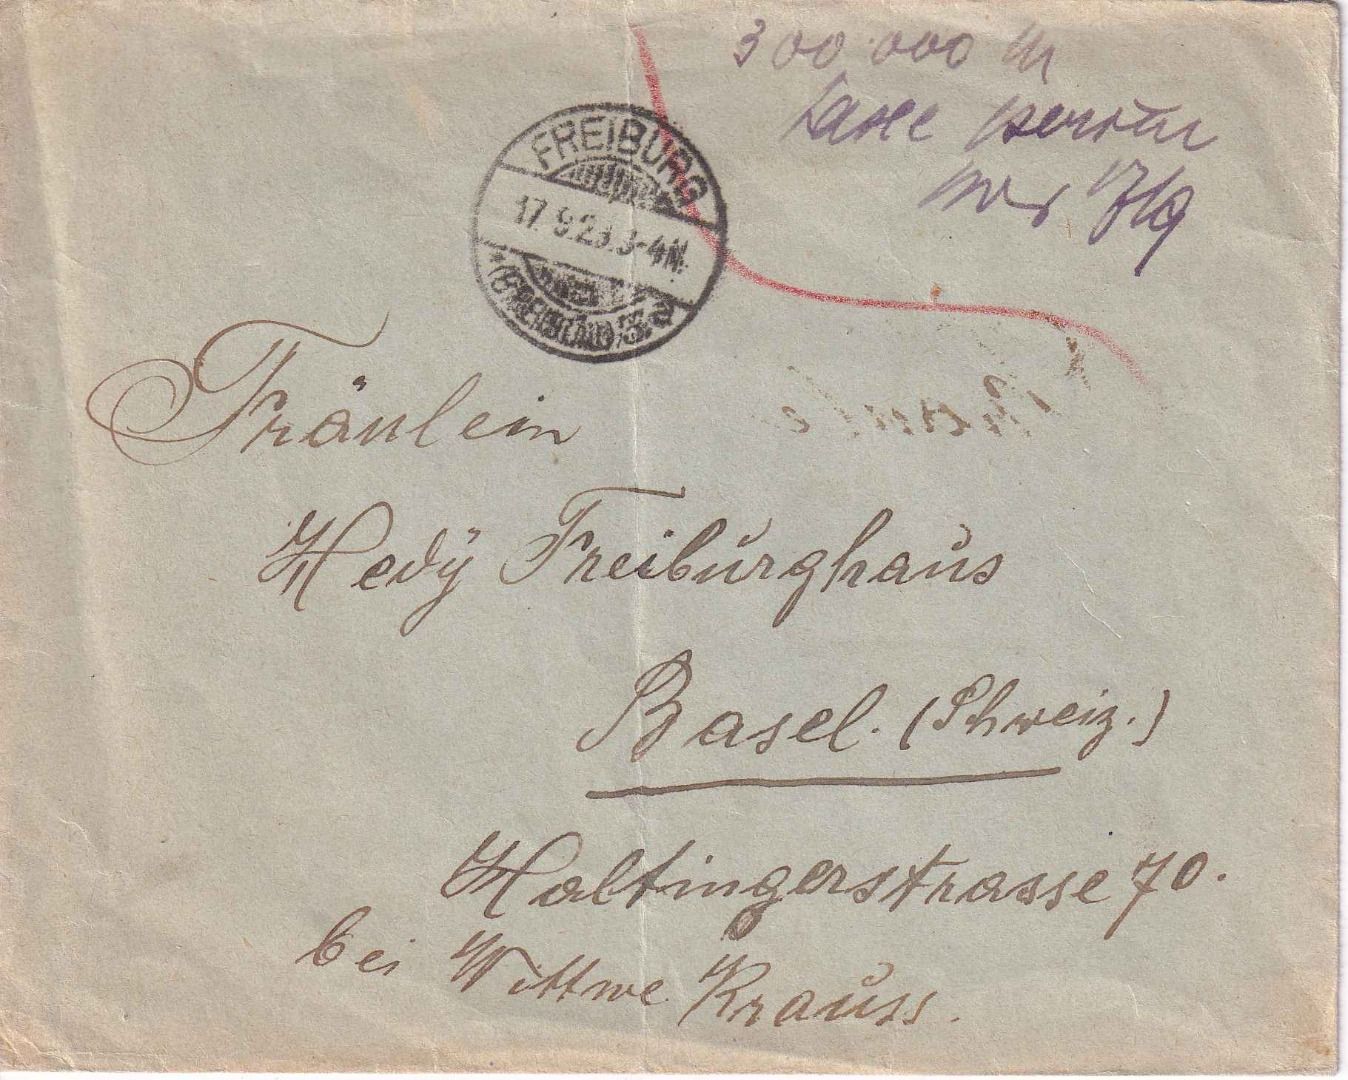 300.000 M
Taxe percue
FREIBURG
17.9.23.3-4N.
*(BREISGAU) 3 a
Fräulein
Hedÿ Freiburghaus
Basel. (Schweiz.)
Haltingerstrasse 70.
bei Wittwe Krauss.